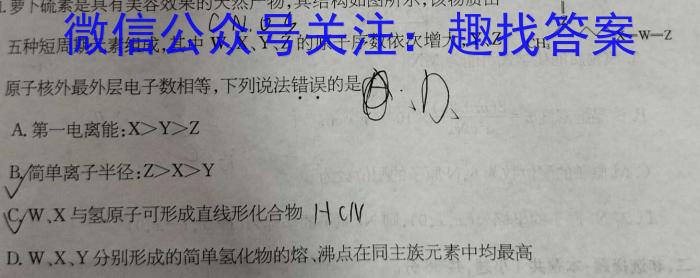 1.萝卜硫素是具有美容效果的天然产物,其结构如图所示,该物质由
C N O S
微信公众号关注:趣找答案
五种短周期元素组成,其中W、X、Y、Z的原子序数依次增大,Y、Z
X=W=Z
原子核外最外层电子数相等,下列说法错误的是
D、
A.第一电离能:X>Y>Z
B.简单离子半径:Z>X>Y
C.W、X与氢原子可形成直线形化合物 HCN
D.W、X、Y分别形成的简单氢化物的熔、沸点在同主族元素中均最高